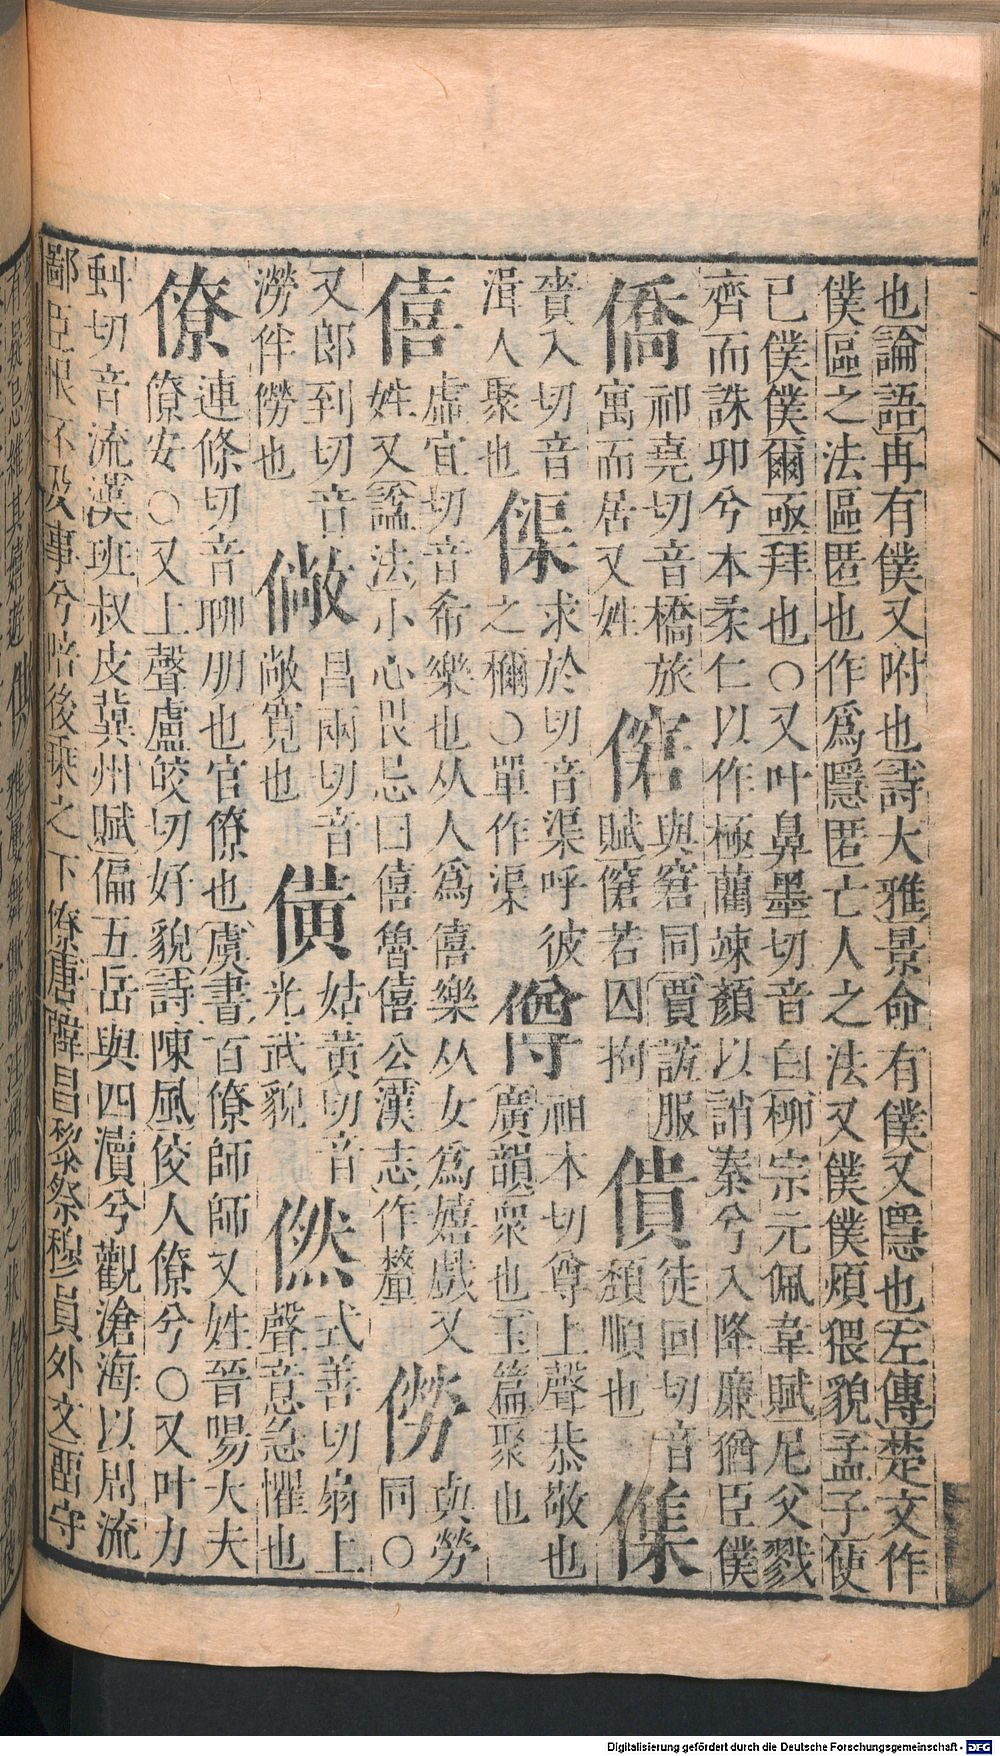 也論語冉有僕又附也詩大雅景命有僕又隱也左傳楚文作
僕區之法區匿也作爲隱匿亡人之法又僕僕煩猥貌孟子使
已僕僕爾亟拜也○又叶鼻墨切音白柳宗元佩韋賦尼父戮
齊而誅卯兮本柔仁以作極藺竦顏以誚秦兮入降廉猶臣僕
僑
祁堯切音橋旅
寓而居又姓
僒
與窘同賈誼服
賦僒若囚拘
僓
徒回切音
頹順也
𠎷
賫入切音
湒人聚也
𠍲
求於切音渠呼彼
之稱○單作渠
僔
祖本切尊上聲恭敬也
廣韻衆也玉篇聚也
僖
虛宜切音希樂也从人爲僖樂从女爲嬉戲又
姓又謚法小心畏忌曰僖魯僖公漢志作釐
僗
與勞
同○
又郎到切音
澇伴僗也
僘
昌兩切音
敞寬也
僙
姑黃切音
光武貌
㒄
式善切扇上
聲意急懼也
僚
連條切音聊朋也官僚也虞書百僚師師又姓晉陽大夫
僚安○又上聲盧皎切好貌詩陳風佼人僚兮○又叶力
虯切音流漢班叔皮冀州賦徧五岳與四瀆兮觀滄海以周流
鄙臣恨不及事兮陪後乘之下僚唐韓昌黎祭穆員外文酉守
Digitalisierung gefördert durch die Deutsche Forschungsgemeinschaft - DFG